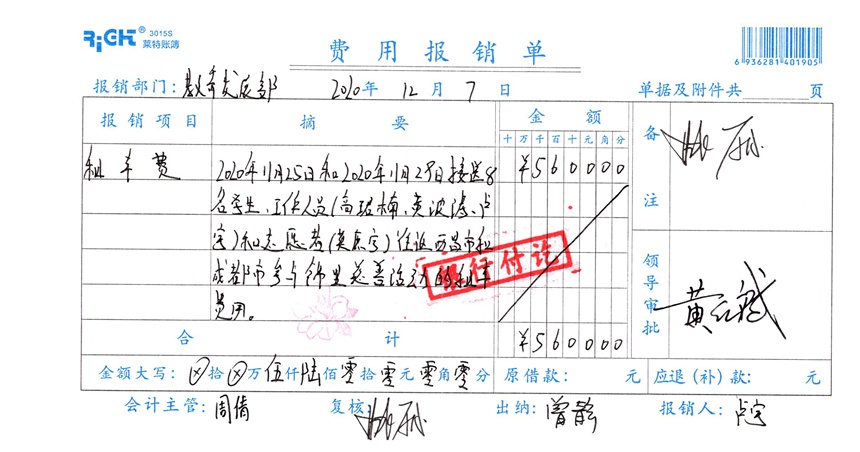 RiCHT® 3015S
莱特账簿
费用报销单
6 936281 401905
报销部门: 教育发展部 2020年 12月 7日 单据及附件共 页
报销项目 摘要 金额 备注
十万千百十元角分
租车费 2020年11月25日和2020年11月29日接送8 ¥560000
名学生、工作人员(高琨楠、黄波涛、卢
宇)和志愿者(莫志宇)往返西昌市和
成都市参与 慈善活动的租车
费用。
银行付讫
领导审批 黄红斌
合计 ¥560000
金额大写: ⊗拾⊗万伍仟陆佰零拾零元零角零分 原借款: 元 应退(补)款: 元
会计主管: 周倩 复核: 出纳: 曾静 报销人: 卢宇